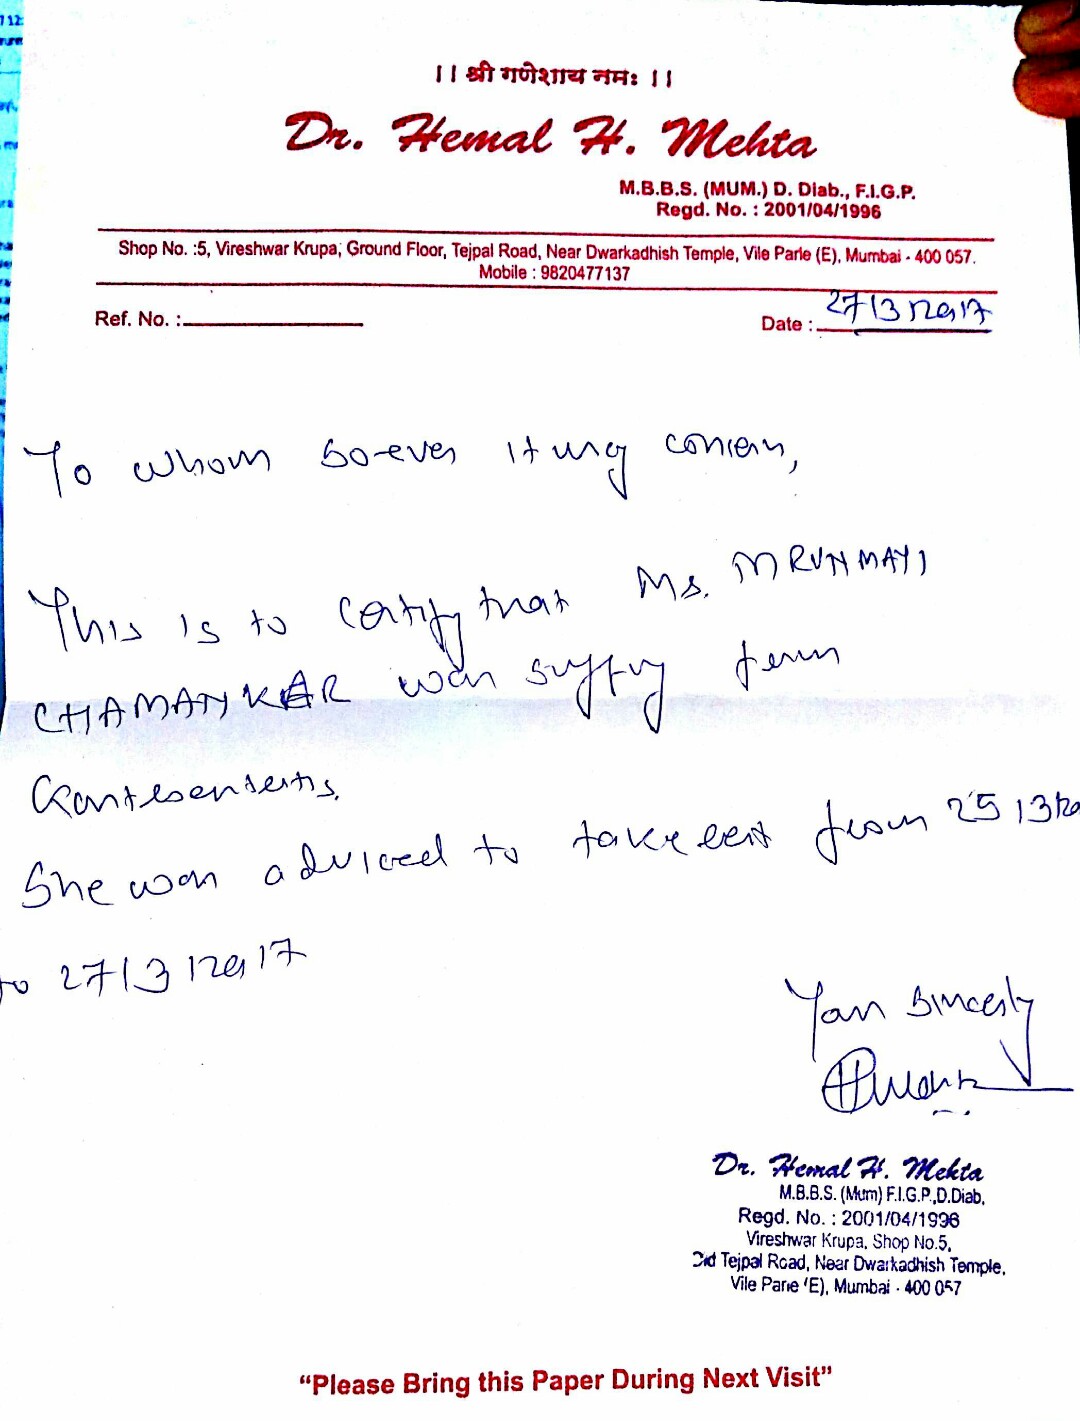 ।। श्री गणेशाय नमः ।।
Dr. Hemal H. Mehta
M.B.B.S. (MUM.) D. Diab., F.I.G.P.
Regd. No. : 2001/04/1996
Shop No. :5, Vireshwar Krupa, Ground Floor, Tejpal Road, Near Dwarkadhish Temple, Vile Parle (E), Mumbai - 400 057.
Mobile : 9820477137
Ref. No. :
Date : 27/3/2017
To whom so-ever it may concern,
This is to certify that Ms. MRUNMAYI
CHAMANKAR was suffering from
She was adviced to take rest from 25/3/20
to 27/3/2017
Your Sincerly
Dr. Hemal H. Mehta
M.B.B.S. (Mum) F.I.G.P.,D.Diab.
Regd. No. : 2001/04/1996
Vireshwar Krupa, Shop No.5,
Old Tejpal Road, Near Dwarkadhish Temple,
Vile Parle (E), Mumbai - 400 057
“Please Bring this Paper During Next Visit”